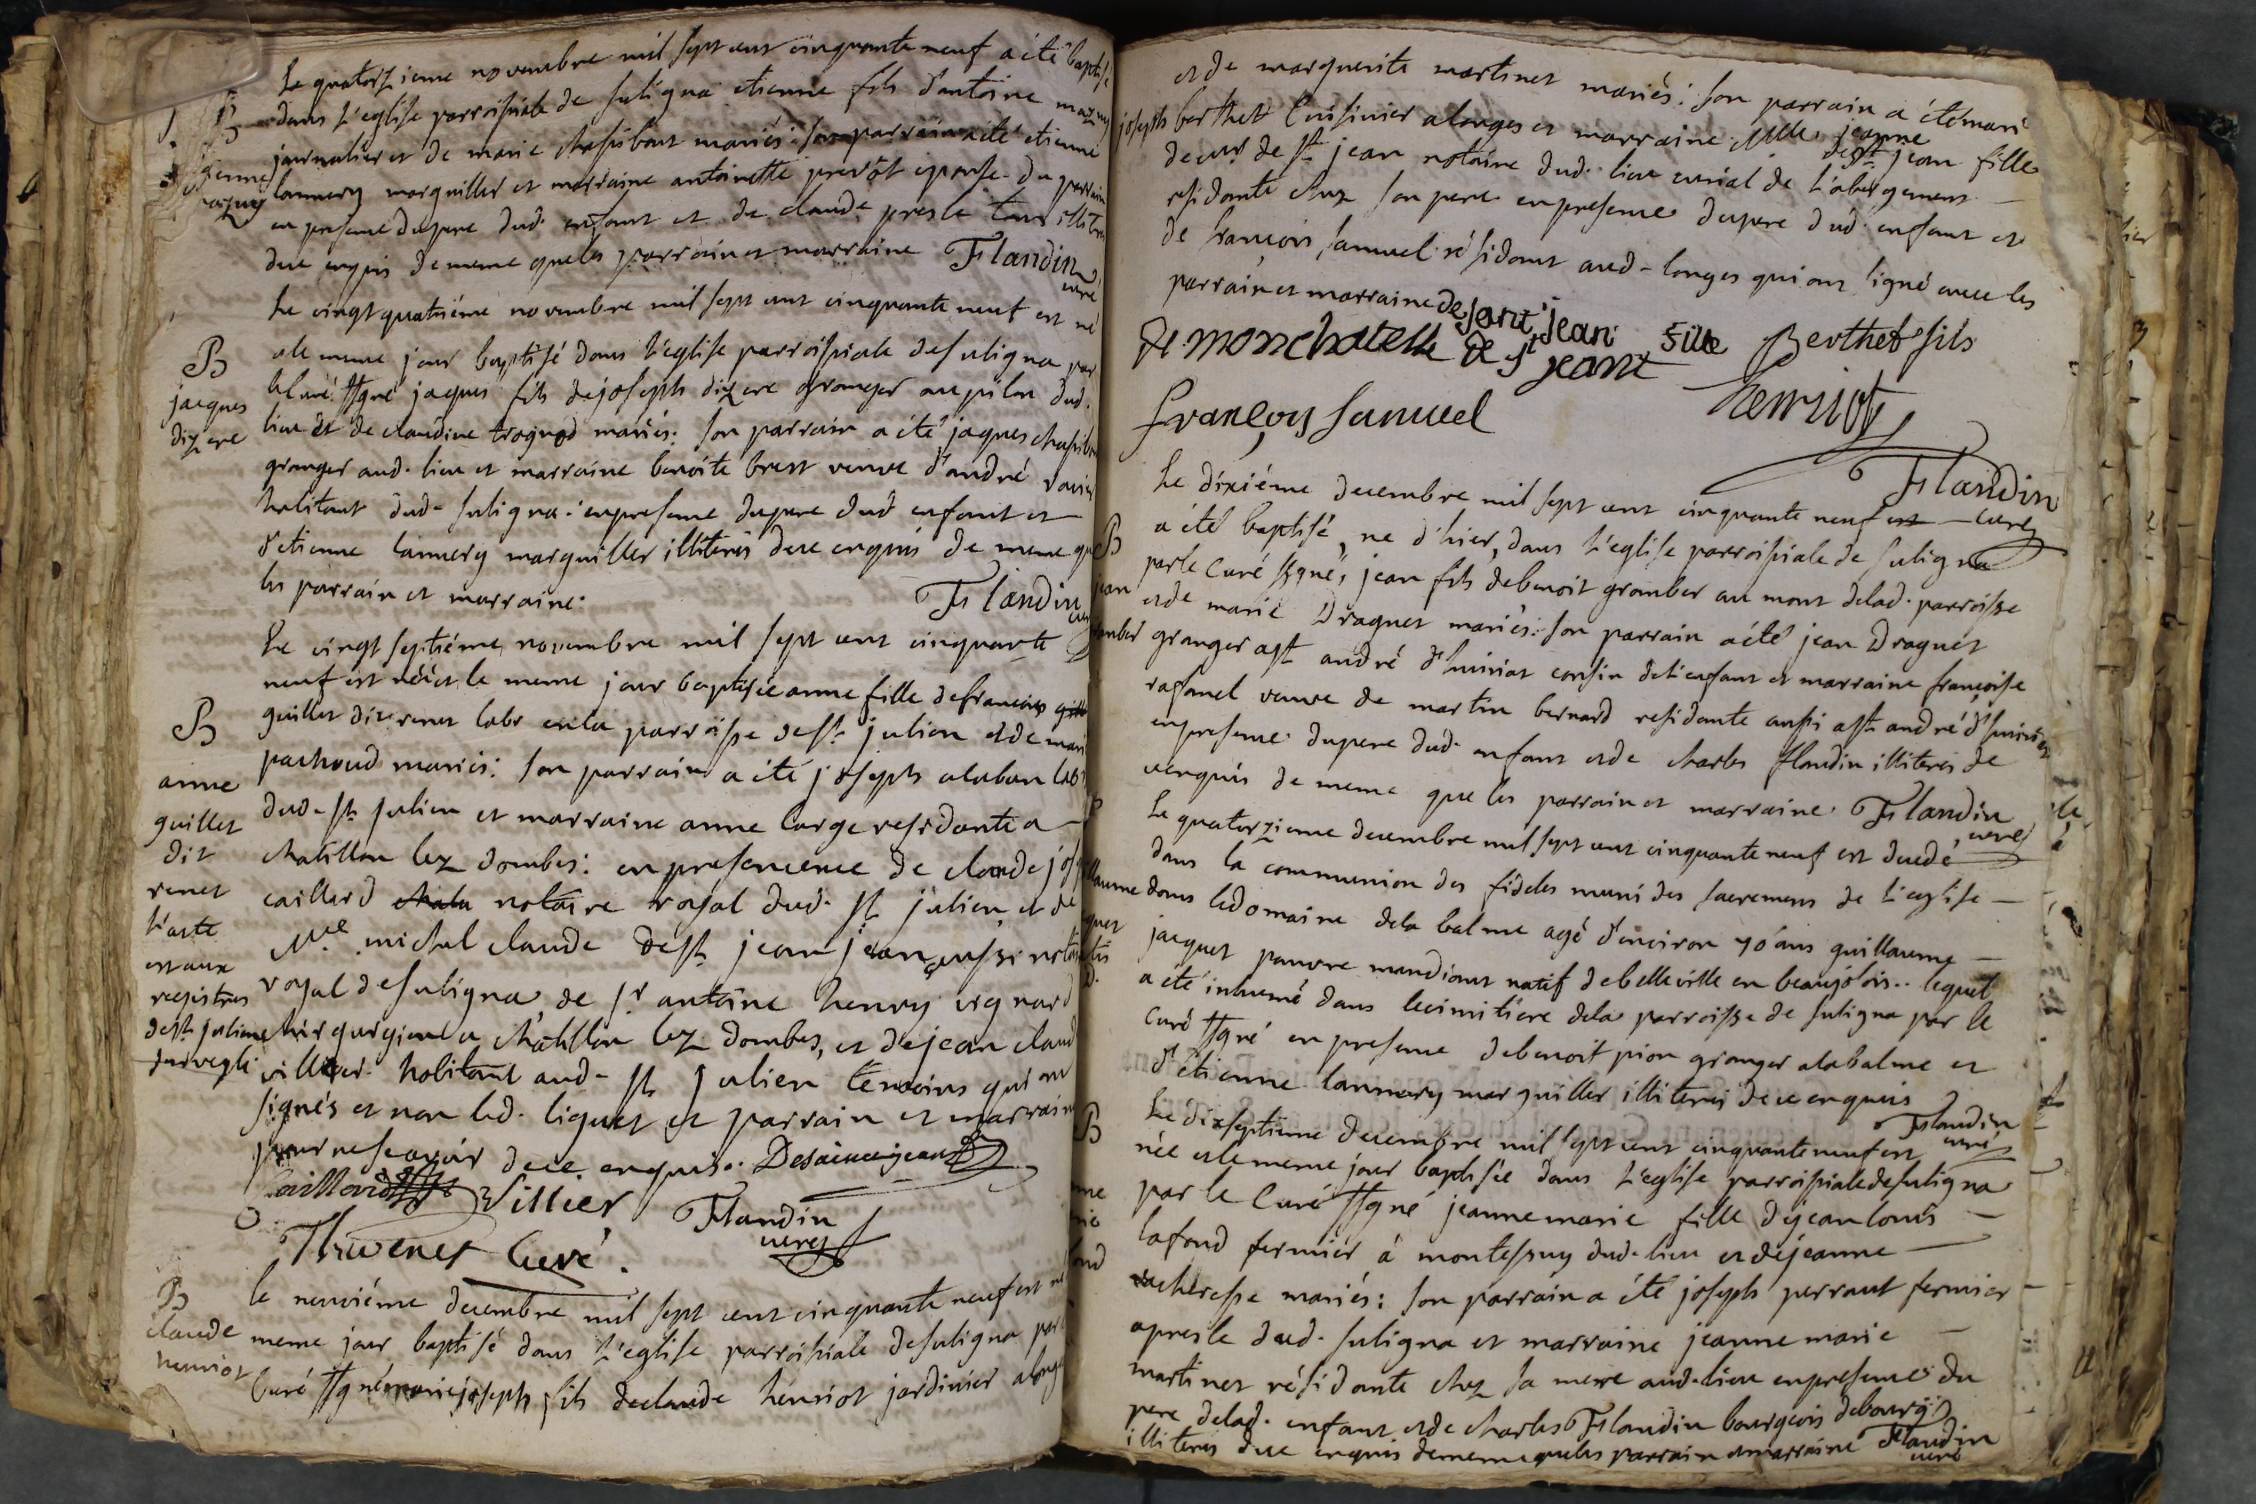 Le quatorzieme novembre mil sept cent cinquante neuf a été baptisé
B
dans l'eglise parroissiale de suligna etienne fils d'antoine mazuy
journalier et de marie chassibout mariés: son parrain a été etienne
lannery marguiller et marraine antoinette prevôt epouse du parrain
en presence du pere dud. enfant et de claude presle tous illiterés
de ce enquis de meme que les parrain et marraine Flandin
curé
Le vingt quatriéme novembre mil sept cent cinquante neuf est né
B
jacques
dizere
et le meme jour baptisé dans l'eglise parroissiale de suligna par
le curé ssgné jacques fils de joseph dizere granger au pilon dud.
lieu et de claudine trognod mariés: son parrain a été jaques
granger aud. lieu et marraine benoite brest veuve d'andré
habitant dud. suligna: en presence du pere dud enfant et
d'etienne lannery marguiller illiterés de ce enquis de meme que
les parrain et marraine.
Flandin
Le vingt septiéme novembre mil sept cent cinquante
neuf est née et le meme jour baptisée anne fille de francois
B
anne
guillet
dit
renet
l'acte
est aux
registres
de st. julien
sur vegle
guillet dit renet labr en la parroisse de st. julien et de marie
pachoud mariés: son parrain a été joseph alaban labr
dud. st. julien et marraine anne large residante a
chatillon lez dombes: en presencence de claude
caillard notaire royal dud. st. julien et de
Mre. michel claude de st. jean jean aussi
royal de suligna de sr. antoine henry vignard
chirurgien a chatillon lez dombes, et de jean claude
villier habitant aud. st. julien temoins qui ont
signés et non led. liquet et parrain et marraine
pour ne scavoir de ce enquis. Desaincejean
Caillard Villier Flandin
curé
Thivenet Curé.
B
claude
henriot
Le neuviéme decembre mil sept cent cinquante neuf est né
meme jour baptisé dans l'eglise parroissiale de suligna par
Curé ssgné marie joseph fils de claude henriot jardinier a longes
et de marguerite martinet mariés: son parrain a été marie
joseph berthet Cuisinier a longes et marraine Mlle. jeanne
de st. jean fille
de st. jean notaire dud. lieu curial de l'abergement
residante chez son pere en presence du pere dud. enfant et
de francois samuel résidant aud. longes qui ont signé avec les
parrain et marraine de sant jean fille Berthet fils
De monchatelle de st jeant
françois samuel henriot
Flandin
curé
Le dixiéme decembre mil sept cent cinquante neuf
B
jean
a été baptisé, ne d'hier, dans l'eglise parroissiale de suligna
par le Curé ssgné, jean fils de benoit gromber au mont de lad. parroisse
et de marie Draguet mariés: son parrain a été jean Draguet
granger a st. andré d'huiriat cousin de l'enfant et marraine françoise
rafanel veuve de martin bernard residante aussi a st. andré d'huiriat
en presence du pere dud. enfant et de charles flandin illiterés de
ce enquis de meme que les parrain et marraine. Flandin
curé
Le quatorzieme decembre mil sept cent cinquante neuf est decedé
dans la communion des fideles muni des sacremens de l'eglise
dans le domaine de la balme agé d'environ 70 ans guillaume
jacquet pauvre mandiant natif de belleville en beaujolois.. lequel
a été inhumé dans le cimitiere de la parroisse de suligna par le
curé ssgné en presence de benoit pion granger a la balme et
d'étienne lannery marguiller illiterés de ce enquis
Flandin
curé
B
Le dixseptieme decembre mil sept cent cinquante neuf est
née et le meme jour baptisée dans l'eglise parroissiale de suligna
par le Curé ssgné jeanne marie fille de jean louis
lafond fermier à montessuy dud. lieu et de jeanne
vacheresse mariés: son parrain a été joseph perraut fermier
apresle dud. suligna et marraine jeanne marie
martinet résidante chez sa mere aud. lieu en presence du
pere de lad. enfant et de charles Flandin bourgeois de bourg
illiterés de ce enquis de meme que les parrain et marraine Flandin
curé